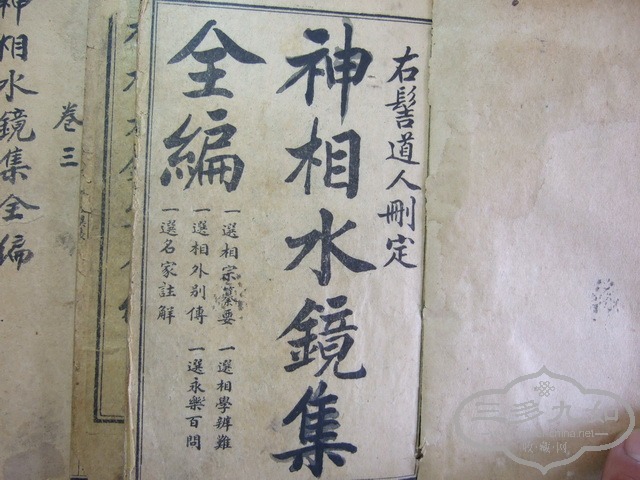 右髻道人刪定
神相水鏡集
全編
一選相宗纂要
一選相學辨難
一選相外別傳
一選永樂百問
一選名家註解
神相水鏡集全編
卷三
三多九如
收藏网